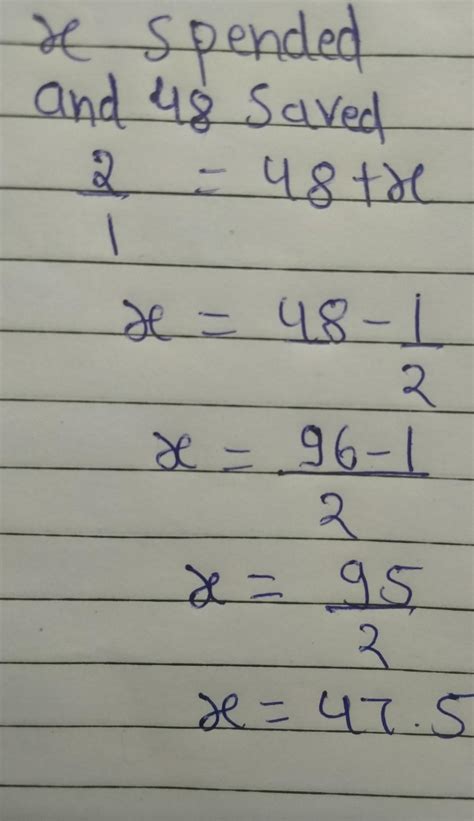 x spended
and 48 saved
2/1 = 48+x
x = 48 - 1/2
x = 96-1/2
x = 95/2
x = 47.5